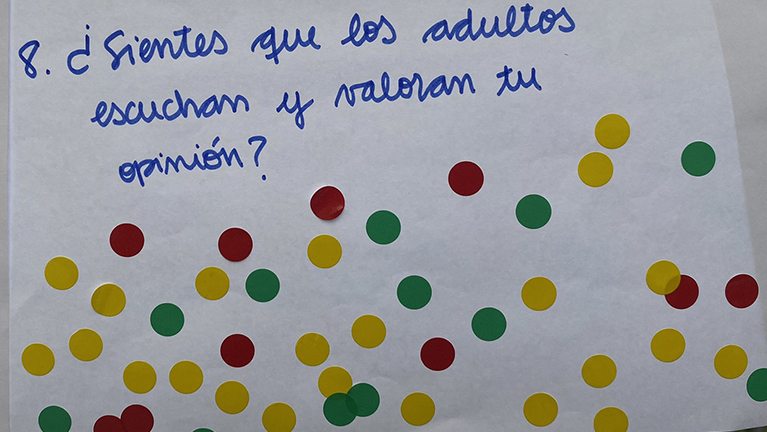 8. ¿Sientes que los adultos
escuchan y valoran tu
opinión?